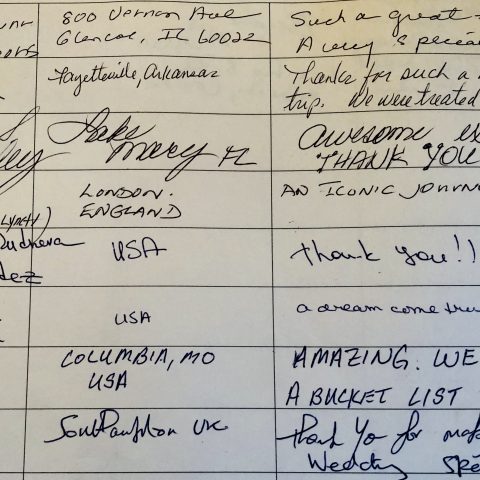 800 Vernon Ave
Glencoe, IL 60022
Such a great
A very special
Fayetteville, Arkansas
Thanks for such a
trip. We were treated
Lake
Mary FL
awesome ex
THANK YOU
LONDON.
ENGLAND
AN ICONIC JOURN
LYNCH)
USA
thank you!!
dez
USA
a dream come true
COLUMBIA, MO
USA
AMAZING. WE
A BUCKET LIST
Southampton UK
thank You for mak
Wedding Spe